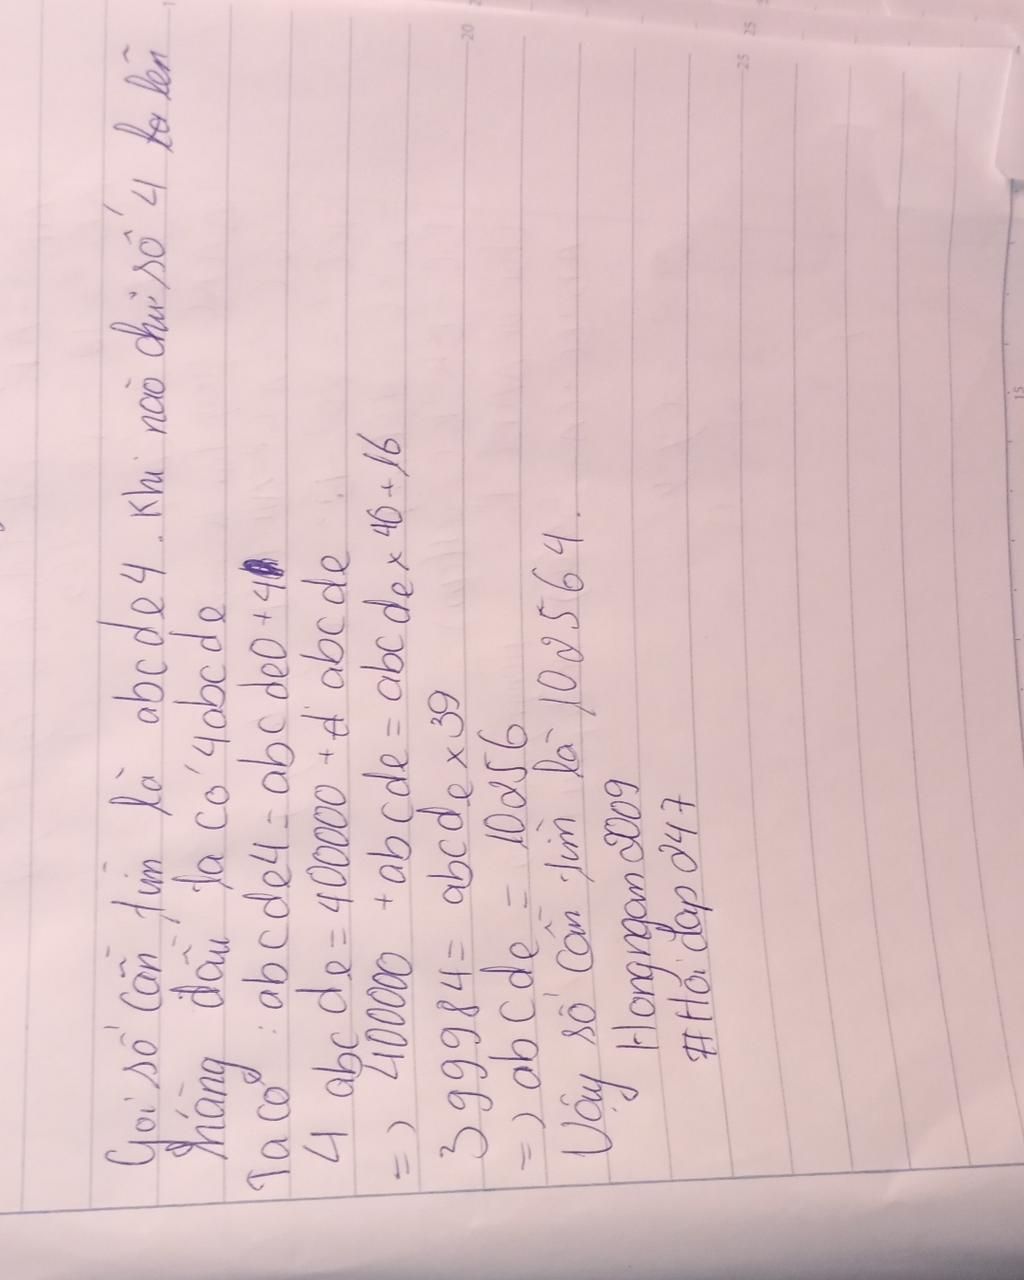 Gọi số cần tìm là abcde4. Khi nào chữ số 4 lên
hàng đầu ta có 4abcde
Ta có: abcde4 = abcde0 + 4
4 abcde = 400000 + abcde
=) 400000 + abcde = abcde x 40 + 16
399984 = abcde x 39
=) abcde = 10256
Vậy số cần tìm là 102564.
Hongngan2009
#Hỏi đap 247
20
25
25
15